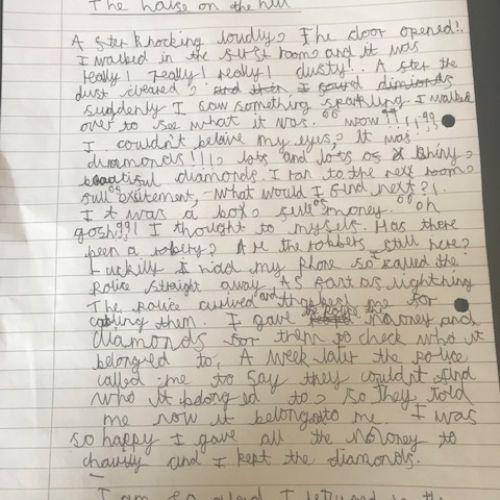 The house on the hill
After knocking loudly, The door opened!.
I walked in the first room, and it was
really! really! really! dusty!. After the
dust cleared, and then I found dimionds
suddenly I saw something sparkling. I walked
over to see what it was. "wow"!!!
I couldn't belaive my eyes, it was.
diamonds!!!, lots and lots of shiny,
beautiful diamonds. I ran to the next room,
full of excitement, what would I find next?!
It was a box, full of money. "oh
gosh"! I thought to myself. Has there
been a robery? Are the robbers still here?
Luckily I had my phone so I called the
police straight away. As fast as lightning
The police arrived and thanked me for
calling them. I gave the police money and
diamonds for them to check who it
belonged to. A week later the police
called me to say they couldnt find
who it belonged to, so they told
me now it belongs to me. I was
so happy I gave all the money to
charity and I kept the diamonds.
I am so glad I